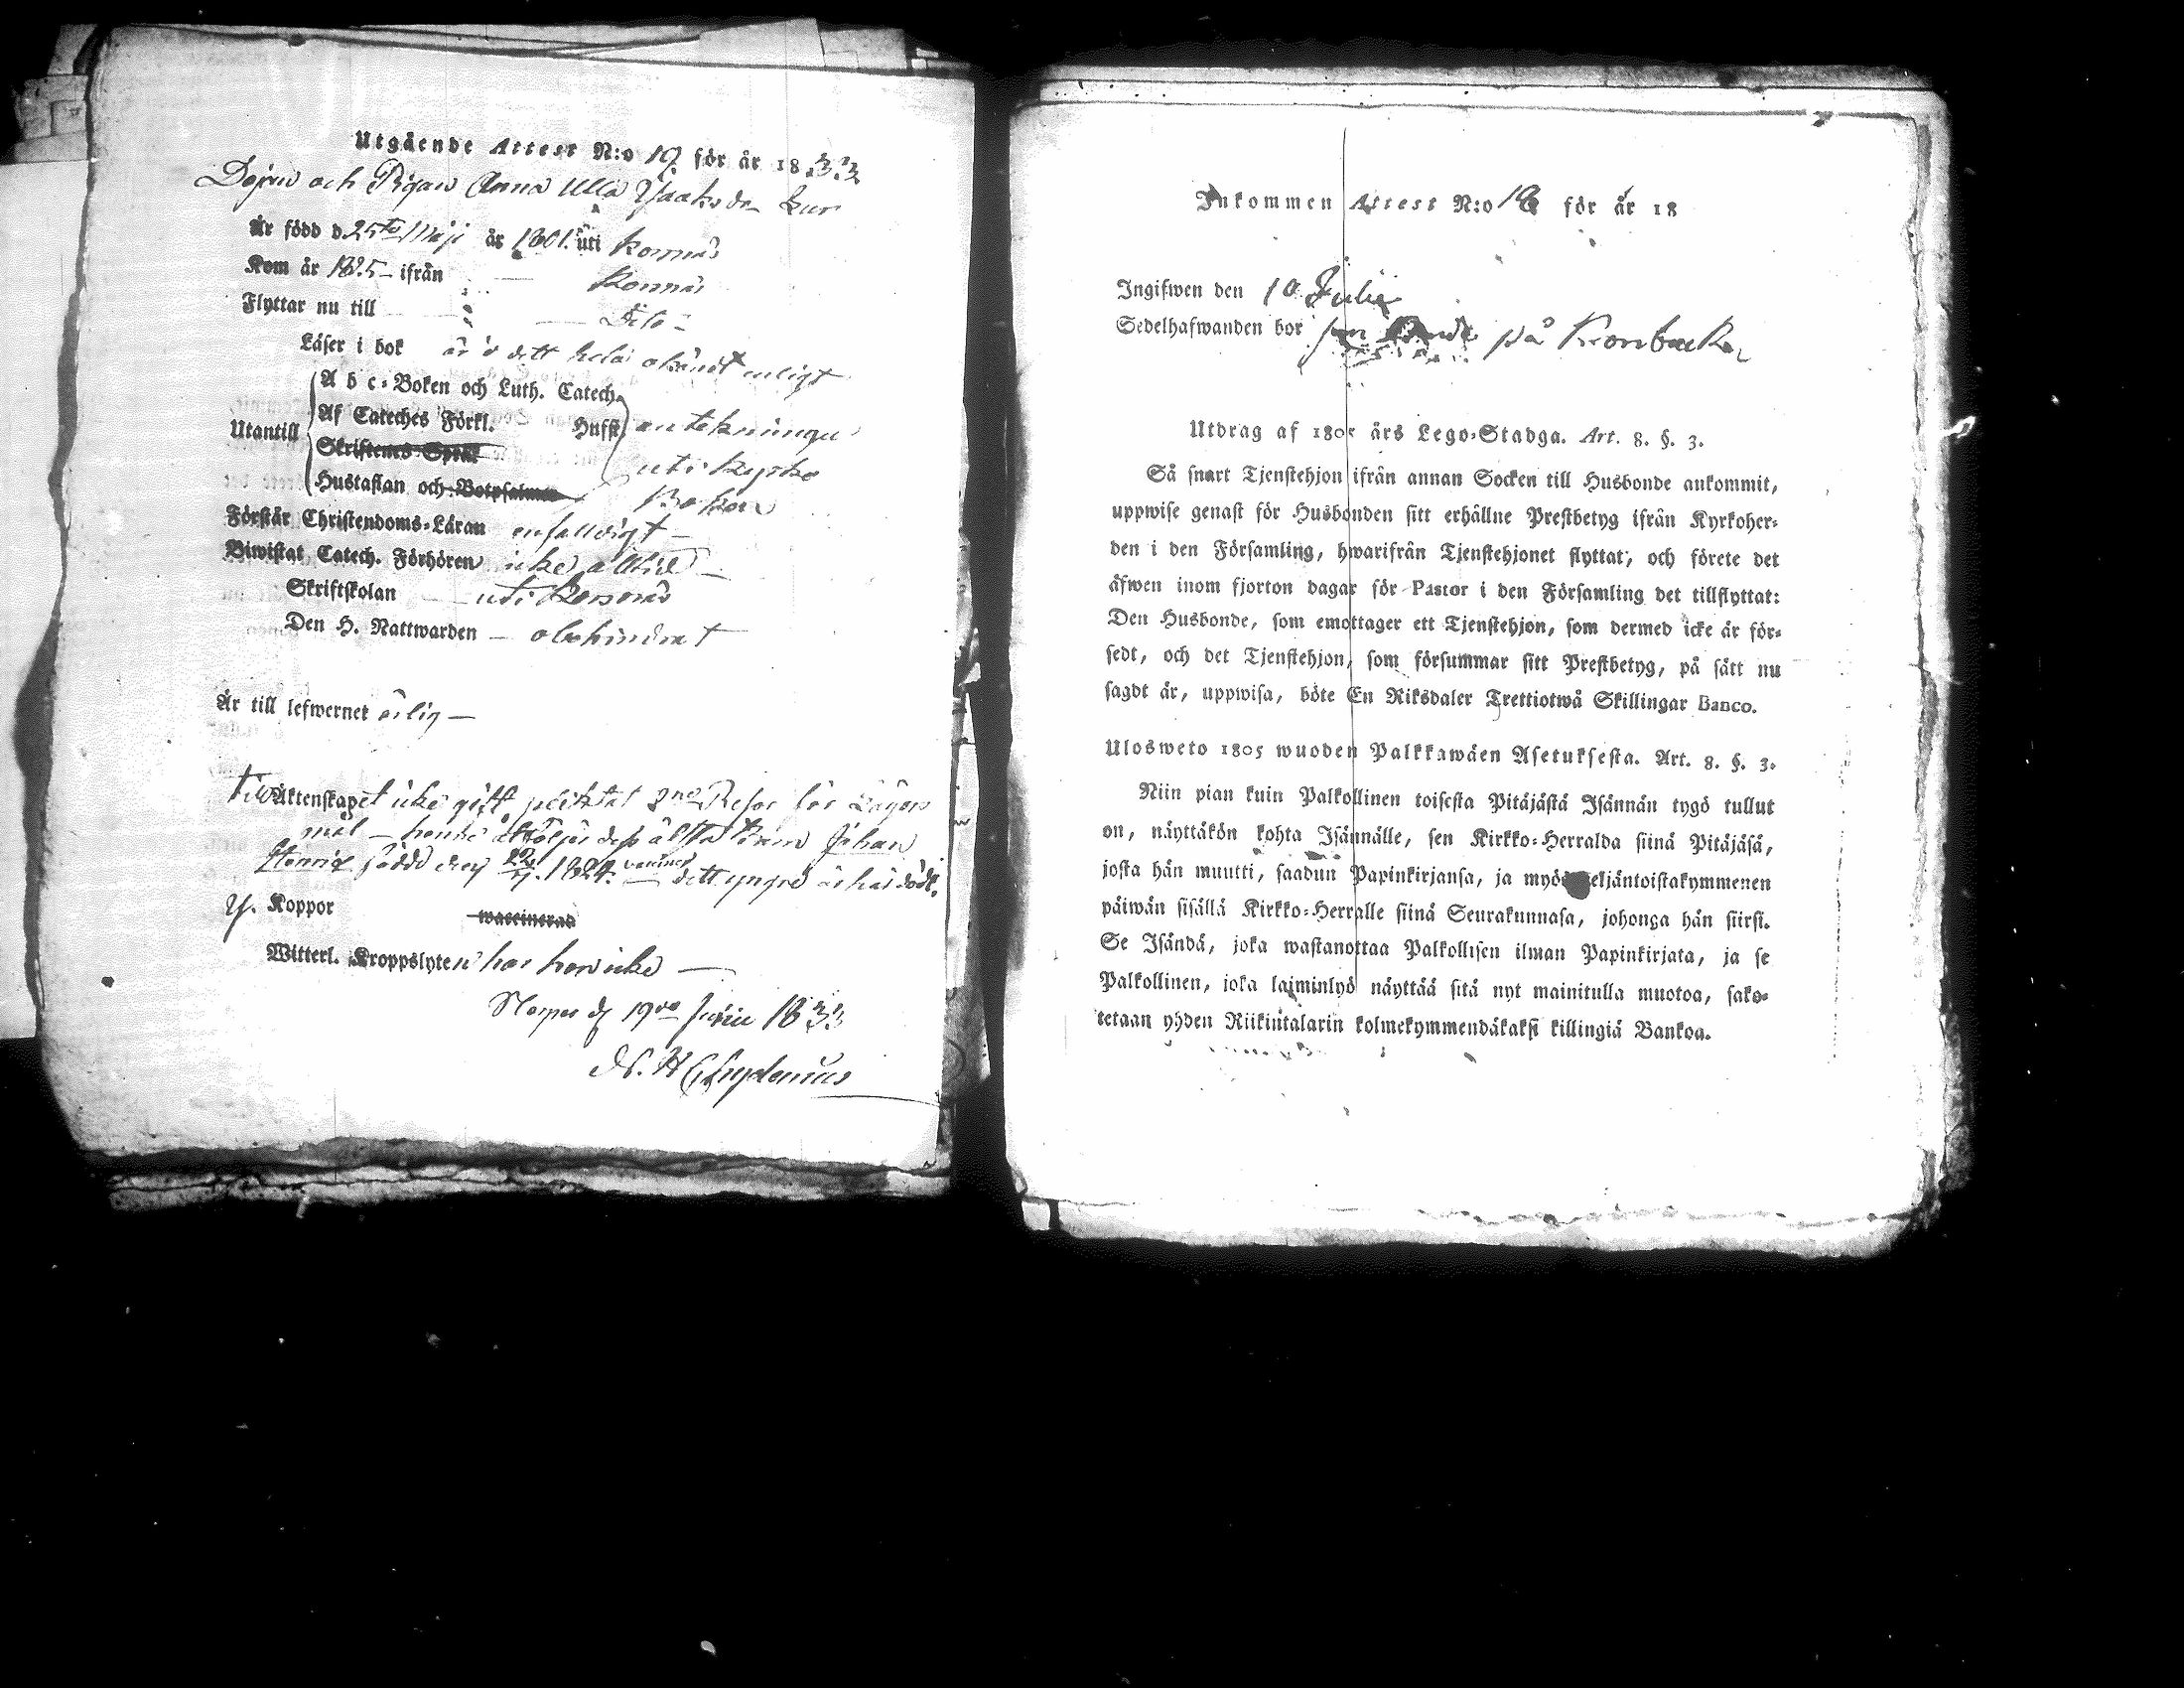 Utgående Attest N:o 19 för år 1833
och Pigan Anna Ulla Lur
Är född d. 25te Maji år 1801. uti Korsnäs
Kom år 1825 – ifrån Korsnäs
Flyttar nu till Dito –
Läser i bok är i dett hela enligt
Utantill
A b c-Boken och Luth. Catech.
Af Cateches Förkl. Hufst. antekningen
Skriftenes Språk uti Kyrko
Hustaflan och Botpsalmer Boken
Förstår Christendoms-Läran enfaldigt –
Biwistat Catech. Förhören icke alltid –
Skriftskolan – uti Korsnäs
Den H. Nattwarden – obehindrat
Är till lefwernet ärlig –
till Äktenskapet icke gift pliktat 2ne Resor för Lägers
mål – henne åtföljer dess älsta barn Johan
Henric född den 1824. dett yngre är här dödt.
Koppor waccinerad
Witterl. Kroppslyten har hon icke –
d 19de Junii 1833
Chydenius
Inkommen Attest N:o för år 18
Ingifwen den 10 Julii
Sedelhafwanden bor på Kronbacka
Utdrag af 1805 års Lego-Stadga. Art. 8. §. 3.
Så snart Tjenstehjon ifrån annan Socken till Husbonde ankommit,
uppwise genast för Husbonden sitt erhållne Prestbetyg ifrån Kyrkoher-
den i den Församling, hwarifrån Tjenstehjonet flyttat, och förete det
äfwen inom fjorton dagar för Pastor i den Församling det tillflyttat:
Den Husbonde, som emottager ett Tjenstehjon, som dermed icke är för-
sedt, och det Tjenstehjon, som försummar sitt Prestbetyg, på sätt nu
sagdt är, uppwisa, böte En Riksdaler Trettiotwå Skillingar Banco.
Ulosweto 1805 wuoden Palkkawäen Asetuksesta. Art. 8. §. 3.
Niin pian kuin Palkollinen toisesta Pitäjästä Isännän tygö tullut
on, näyttäkön kohta Isännälle, sen Kirkko-Herralda siinä Pitäjäsä,
josta hän muutti, saadun Papinkirjansa, ja myös neljäntoistakymmenen
päiwän sisällä Kirkko-Herralle siinä Seurakunnasa, johonga hän siirsi.
Se Isändä, joka wastanottaa Palkollisen ilman Papinkirjata, ja se
Palkollinen, joka laiminlyö näyttää sitä nyt mainitulla muotoa, sako-
tetaan yhden Riikintalarin kolmekymmendäkaksi killingiä Bankoa.